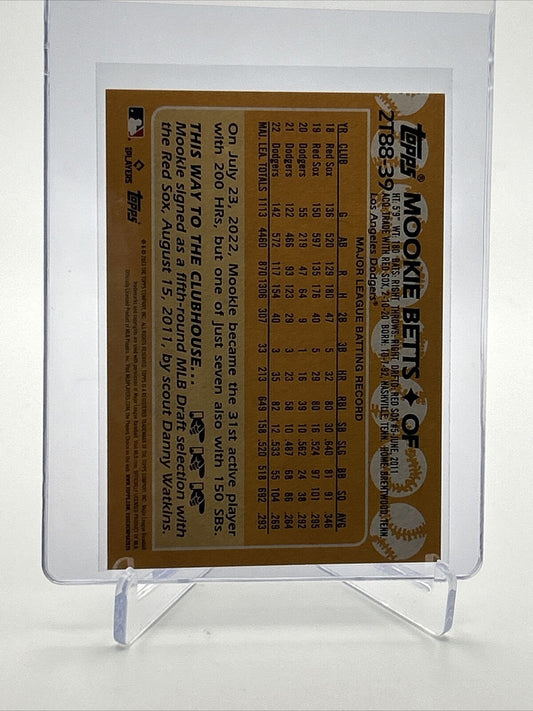 topps® MOOKIE BETTS ✦ OF
2T88-39
HT: 5'9" WT: 180 BATS: RIGHT THROWS: RIGHT DRAFTED: RED SOX #5-JUNE, 2011
ACQ: TRADE WITH RED SOX, 2-10-20 BORN: 10-7-92, NASHVILLE, TENN. HOME: BRENTWOOD, TENN.
Los Angeles Dodgers®
MAJOR LEAGUE BATTING RECORD
YR CLUB G AB R H 2B 3B HR RBI SB SLG BB SO AVG
18 Red Sox 136 520 129 180 47 5 32 80 30 .640 81 91 .346
19 Red Sox 150 597 135 176 40 5 29 80 16 .524 97 101 .295
20 Dodgers 55 219 47 64 9 1 16 39 10 .562 24 38 .292
21 Dodgers 122 466 93 123 29 3 23 58 10 .487 68 86 .264
22 Dodgers 142 572 117 154 40 3 35 82 12 .533 55 104 .269
MAJ. LEA. TOTALS 1113 4460 870 1306 307 33 213 649 158 .520 518 692 .293
On July 23, 2022, Mookie became the 31st active player
with 200 HRs, but one of just seven also with 150 SBs.
THIS WAY TO THE CLUBHOUSE...
Mookie signed as a fifth-round MLB Draft selection with
the Red Sox, August 15, 2011, by scout Danny Watkins.
PLAYERS
topps
® & © 2023 THE TOPPS COMPANY, INC. ALL RIGHTS RESERVED.